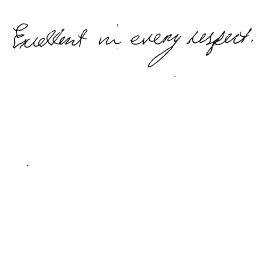 Excellent in every respect.